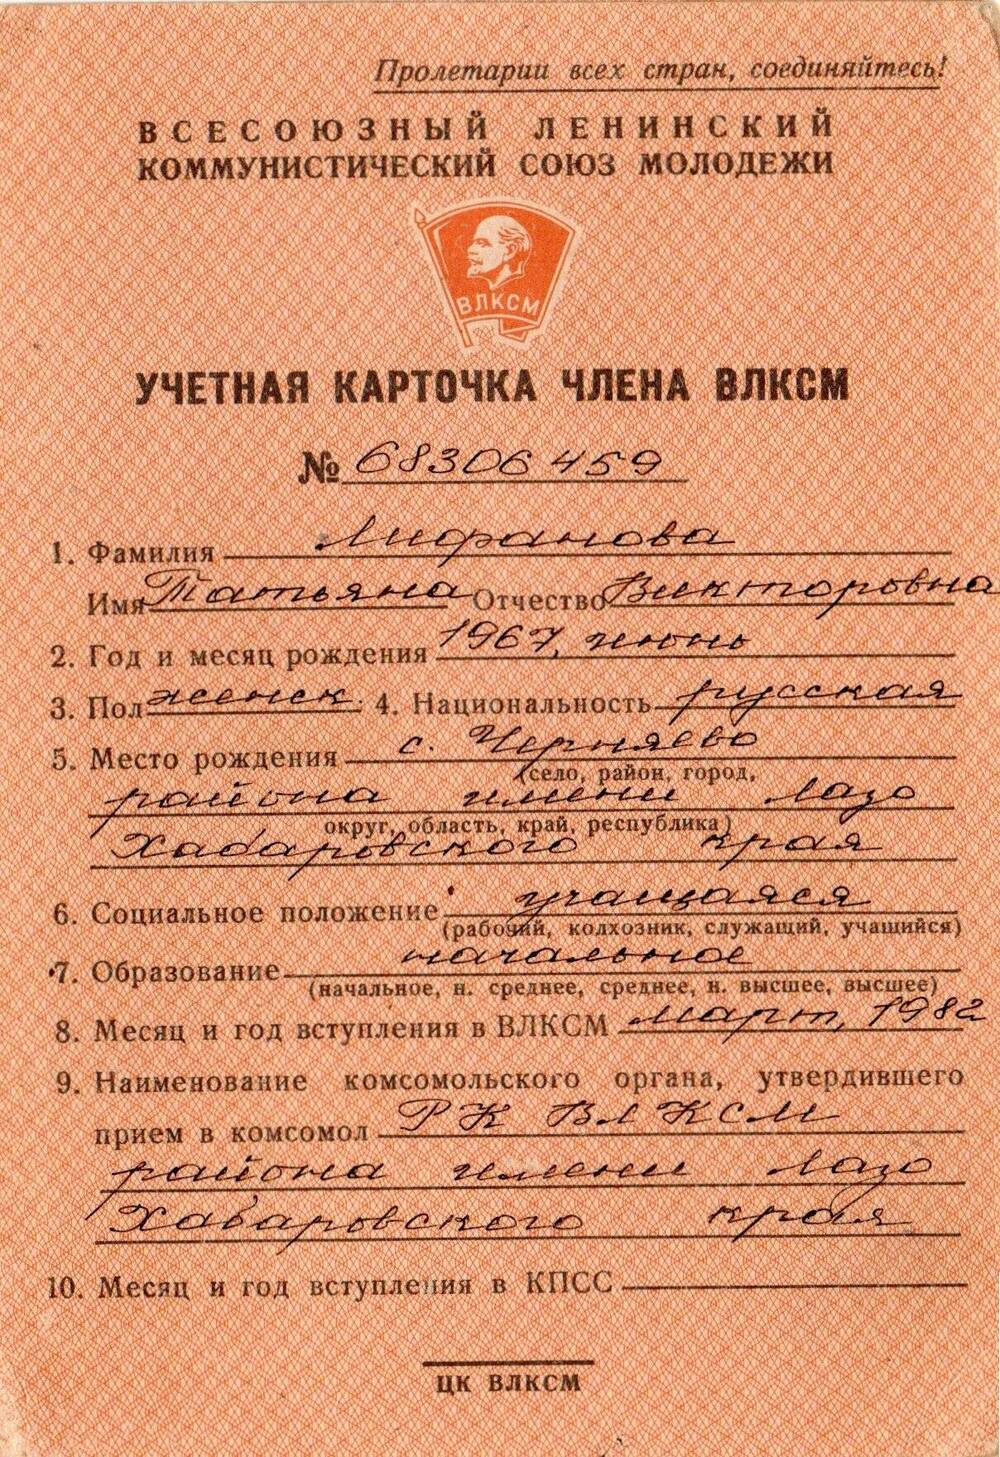 Пролетарии всех стран, соединяйтесь!
ВСЕСОЮЗНЫЙ ЛЕНИНСКИЙ
КОММУНИСТИЧЕСКИЙ СОЮЗ МОЛОДЕЖИ
ВЛКСМ
УЧЕТНАЯ КАРТОЧКА ЧЛЕНА ВЛКСМ
№ 68306459
1. Фамилия Лифанова
Имя Татьяна Отчество Викторовна
2. Год и месяц рождения 1967, июнь
3. Пол женск. 4. Национальность русская
5. Место рождения с. Черняево
(село, район, город,
района имени Лазо
округ, область, край, республика)
Хабаровского края
6. Социальное положение учащаяся
(рабочий, колхозник, служащий, учащийся)
7. Образование начальное
(начальное, н. среднее, среднее, н. высшее, высшее)
8. Месяц и год вступления в ВЛКСМ март, 1982
9. Наименование комсомольского органа, утвердившего
прием в комсомол РК ВЛКСМ
района имени Лазо
Хабаровского края
10. Месяц и год вступления в КПСС
ЦК ВЛКСМ